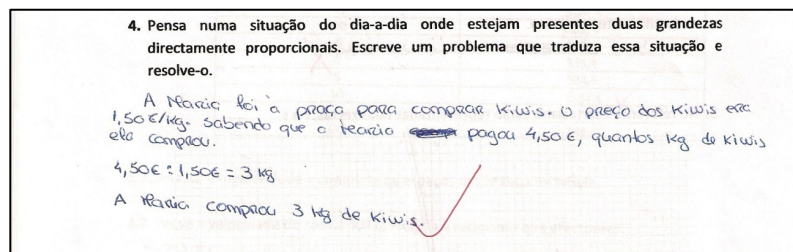 4. Pensa numa situação do dia-a-dia onde estejam presentes duas grandezas
directamente proporcionais. Escreve um problema que traduza essa situação e
resolve-o.
A Maria foi à praça para comprar Kiwis. O preço dos Kiwis era
1,50€/Kg. Sabendo que a Maria pagou 4,50€, quantos Kg de Kiwis
ela comprou.
4,50€ : 1,50€ = 3 Kg
A Maria comprou 3 Kg de Kiwis.